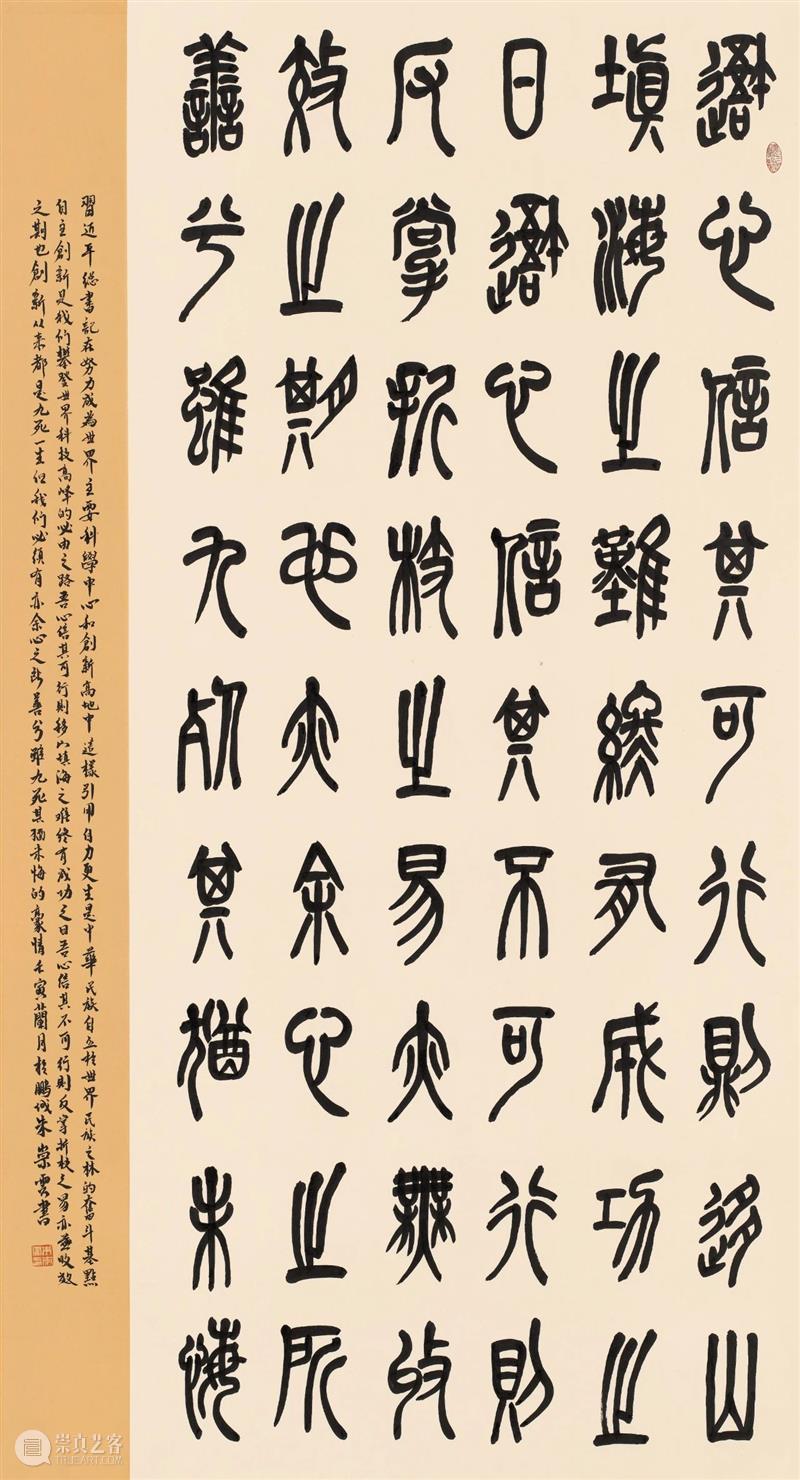 吾心信其可行則迻山
填海之難終有成功之
日吾心信其不可行則
反掌折枝之易亦無收
效之期也亦余心之所
善兮雖九死其猶未悔
習近平總書記在努力成為世界主要科學中心和創新高地中這樣引用自力更生是中華民族自立於世界民族之林的奮斗基點
自主創新是我們攀登世界科技高峰的必由之路吾心信其可行則移山填海之難終有成功之日吾心信其不可行則反掌折枝之易亦無收效
之期也創新从來都是九死一生但我們必須有亦余心之所善兮雖九死其猶未悔的豪情壬寅蘭月於鵬城朱崇雲書
崇真艺客